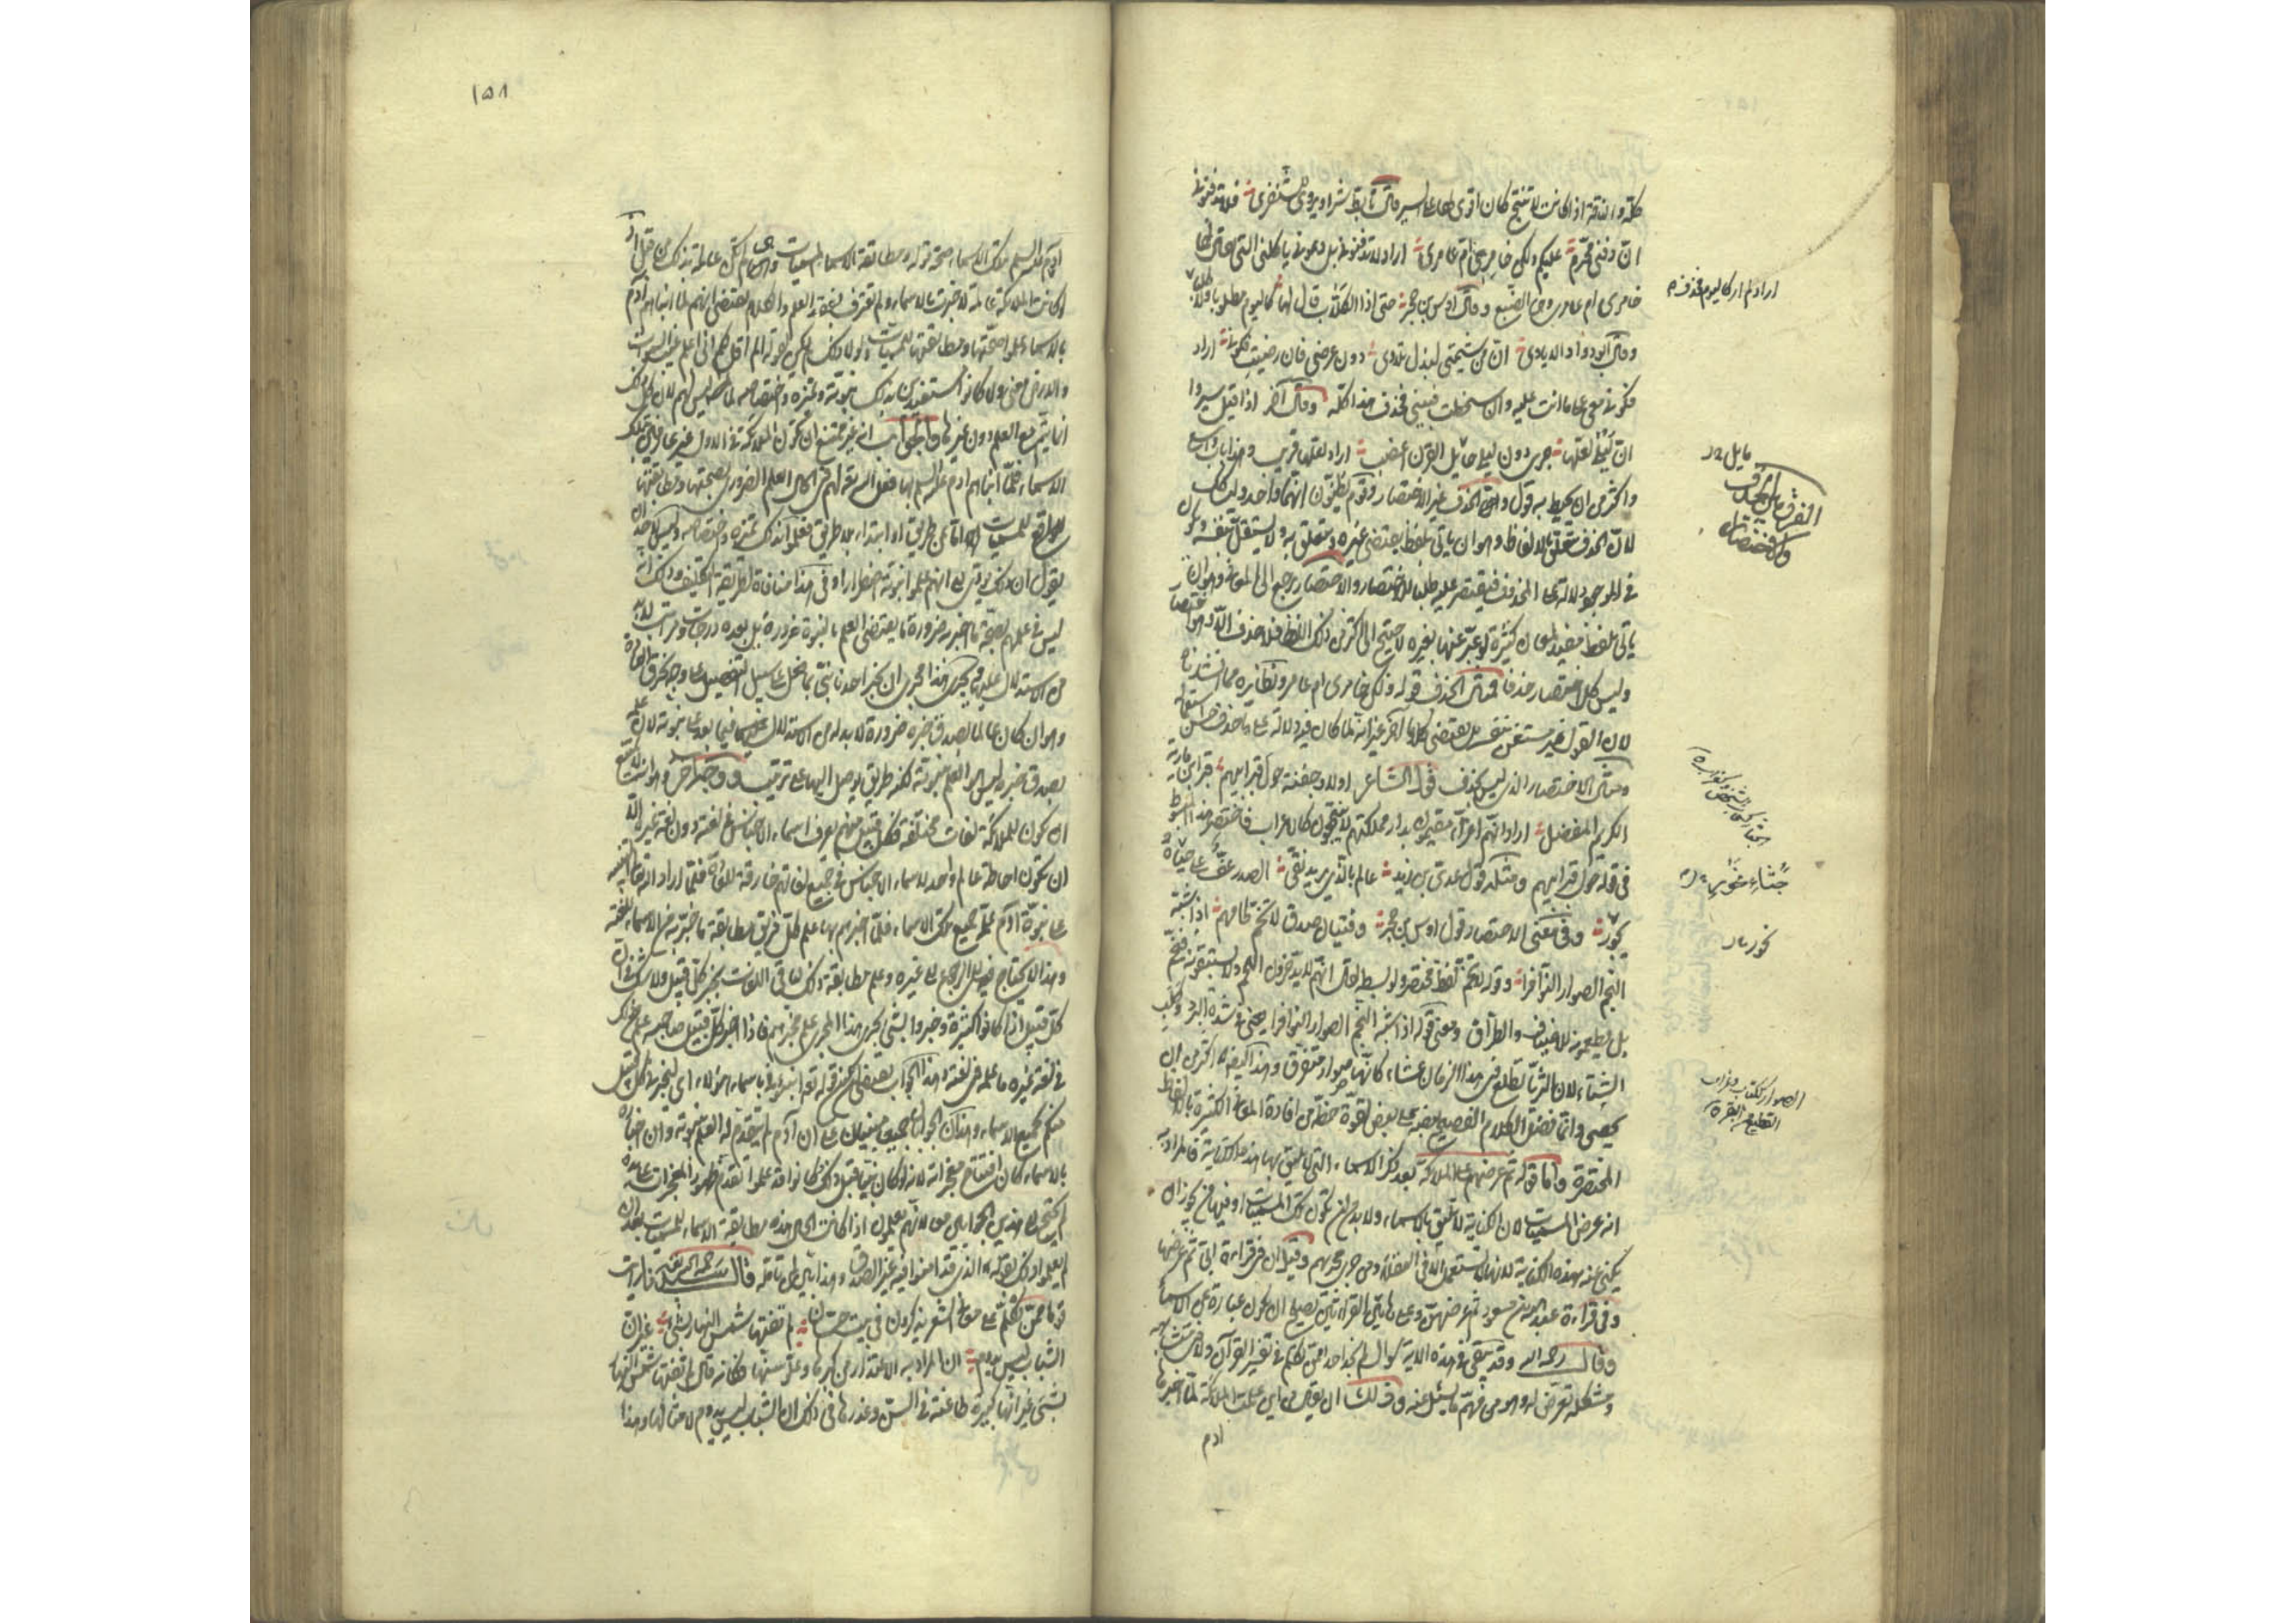 ان دفنى محرّم عليكم ولكن خامرى ام عامرى اراد لا تدفنونى بل دعونى ياكلنى التى يقال لها
خامرى ام عامر وهى الضبع وقال اوس بن حجر حتى اذا الكلاب قال لها كاليوم مطلوبا ولا طلبا
اراد لم ار كاليوم فحذف
وقال ابو دواد الايادى ان من شيمتى لبذل تلادى دون عرضى فان رضيت فكونى اراد
فكونى معى على ما انت عليه وان سخطت فبينى فحذف هذا كله وقال آخر اذا قيل سيروا
ان ليلى لعلها جرى دون ليلى مايل القرن اعضب اراد لعلها قريب وهذا باب واسع
مايل
واكثر من ان يحيط به قول والحذف غير الاختصار وقوم يظنون انهما واحد وليس كذلك
الفرق بين الحذف
والاختصار
لان الحذف يتعلق بالالفاظ وهو ان ياتى بلفظ يقتضى غيره ويتعلق به ولا يستقل بنفسه ويكون
فى الموجود دلالة على المحذوف فيقتصر عليه طلبا للاختصار والاختصار يرجع الى المعانى وهو ان
ياتى بلفظ مفيد لمعان كثيرة لو عبر عنها بغيره لاحتيج الى اكثر من ذلك اللفظ فلا حذف الا وهو اختصار
وليس كل اختصار حذفا فمثال الحذف قوله ولكن خامرى ام عامر ونظائره مما انشدناه
لان القول غير مستغن بنفسه بل يقتضى كلاما آخر غير انه لما كان فيه دلالة على ما حذف حسن استعماله
ومثال الاختصار الذى ليس بحذف قول الشاعر اولاد جفنة حول قبر ابيهم قبر ابن مارية
الكريم المفضل اراد انهم اعزاء مقيمون بدار مملكتهم لا ينتجعون كالاعراب فاختصر هذا المبسوط
فى قوله حول قبر ابيهم ومثله قول عدى بن زيد عالم بالذى يريد نقى الصدر عف على جثاه
نحور وفى معنى الاختصار قول اوس بن حجر وفتيان صدق لا تخم لحامهم اذا شبه
النجم الصوار النوافرا وقوله لا تخم لفظ مختصر ولو بسطه لقال انهم لا يدخرون اللحم ولا يستبقونه فيخم
بل يطعمونه الاضياف والطراق ومعنى قوله اذا شبه النجم الصوار النوافرا يعنى فى شدة البرد وكلب
الشتاء لان الثريا تطلع فى هذا الزمان عشاء كانها صوار متفرق وهذا ايضا اكثر من ان
يحصى وانما فضل الكلام الفصيح بعضه على بعض لقوة حظه من افادة المعانى الكثيرة بالالفاظ
المختصرة واما قوله ثم عرضهم على الملائكة بعد ذكر الاسماء التى لا يليق بها هذه الكناية فالمراد به
انه عرض المسميات لان الكناية لا تليق بالاسماء ولا بد من ان تكون تلك المسميات او فيها من يجوز ان
يكنى عنه بهذه الكناية لانها لا تستعمل الا فى العقلاء ومن جرى مجراهم وقيل ان فى قراءة ابى ثم عرضها
وفى قراءة عبد الله بن مسعود ثم عرضهن وعلى هاتين القراءتين يصلح ان يكون عبارة عن الاسماء
وقال رحمه الله وقد بقى فى هذه الاية سؤال لم نجد احدا ممن تكلم فى تفسير القرآن ولا فى متشابهه
ومشكله تعرض له وهو من مهم ما يسئل عنه وذلك ان يقال من اين علمت الملائكة لما اخبرها
ادم
١٥٨
آدم عليه السلم بتلك الاسماء صحة قوله ومطابقة الاسماء للمسميات وهى لم تكن عالمة بذلك من قبل اذ
لو كانت الملائكة عالمة لاخبرت بالاسماء ولم تعترف بفقد العلم والكلام يقتضى انهم لما انباهم آدم
بالاسماء علموا صحتها ومطابقتها للمسميات ولولا ذلك لم يكن لقوله الم اقل لكم انى اعلم غيب السموات
والارض معنى ولا كانوا مستفيدين بذلك نبوته وتميزه واختصاصه بما ليس لهم لان كل ذلك
انما يتم مع العلم دون غيره والجواب انه غير ممتنع ان تكون الملائكة فى الاول غير عارفين بتلك
الاسماء فلما انباهم ادم عليه السلم بها فعل الله تعالى لهم فى الحال العلم الضرورى بصحتها ومطابقتها
للمسميات اما عن طريق او ابتداء بلا طريق فعلموا بذلك تميزه واختصاصه وليس لاحد ان
يقول ان ذلك يؤدى الى انهم علموا نبوته اضطرارا وفى هذا منافاة لطريقة التكليف وذلك انه
ليس فى علمهم بصحة ما اخبر به ضرورة ما يقتضى العلم بالنبوة ضرورة بل بعده درجات ومراتب لا بد
من الاستدلال عليها ويجرى هذا مجرى ان يخبر احدنا نبى بما فعل على سبيل التفصيل على وجه يخرق العادة
وهو ان كان عالما بصدق خبره ضرورة لا بد له من الاستدلال فيما بعد على نبوته لان علمه
بصدق خبره ليس هو العلم بنبوته لكنه طريق يوصل اليها على ترتيب ووجه آخر وهو انه لا يمتنع
ان يكون للملائكة لغات مختلفة فكل قبيل منهم يعرف اسماء الاجناس فى لغته دون لغة غيره الا
ان تكون احاطة عالم واحد لاسماء الاجناس فى جميع لغاتهم خارقة للعادة فلما اراد الله تعالى التنبيه
على نبوة آدم علمه جميع تلك الاسماء فلما اخبرهم بها علم كل فريق مطابقة ما خبر به من الاسماء للغته
وهذا لا يحتاج فيه الى الرجوع الى غيره وعلم مطابقة ذلك لباقى اللغات بخبر كل قبيل ولا شك فى ان
كل قبيل اذا كانوا كثيرة وخبروا بشىء يجرى هذا المجرى علم بخبرهم فاذا اخبر كل قبيل صاحبه علم من ذلك
فى لغة غيره ما علمه فى لغته وهذا الجواب يقتضى ان يكون قوله تعالى انبئونى باسماء هؤلاء اى ليخبرنى كل قبيل
منكم بجميع الاسماء وهذان الجوابان جميعا مبنيان على ان آدم لم يتقدم له العلم بنبوته وان اخباره
بالاسماء كان افتتاح معجزاته لانه لو كان نبيا قبل ذلك وكانوا قد علموا تقدم ظهور المعجزات على يده
لم يحتج الى هذين الجوابين معا لانهم يعلمون اذا كانت الحال هذه مطابقة الاسماء للمسميات بعد ان
لم يعلموا ذلك بقوله الذى قد امنوا فيه غير الصدق وهذا بين لمن تامله قال سيدنا رحمه الله تعالى رايت
قوما ممن تكلم على معانى الشعر يذكرون فى بيت حسان لم تفتها شمس النهار بشىء غير ان
الشباب ليس يدوم ان المراد به الاعتذار من كبرها وعلو سنها فكانه قال لم تفتها شمس النهار
بشىء غير انها كبيرة طاعنة فى السن وعذرها فى ذلك ان الشباب ليس يدوم لامثالها وهذا